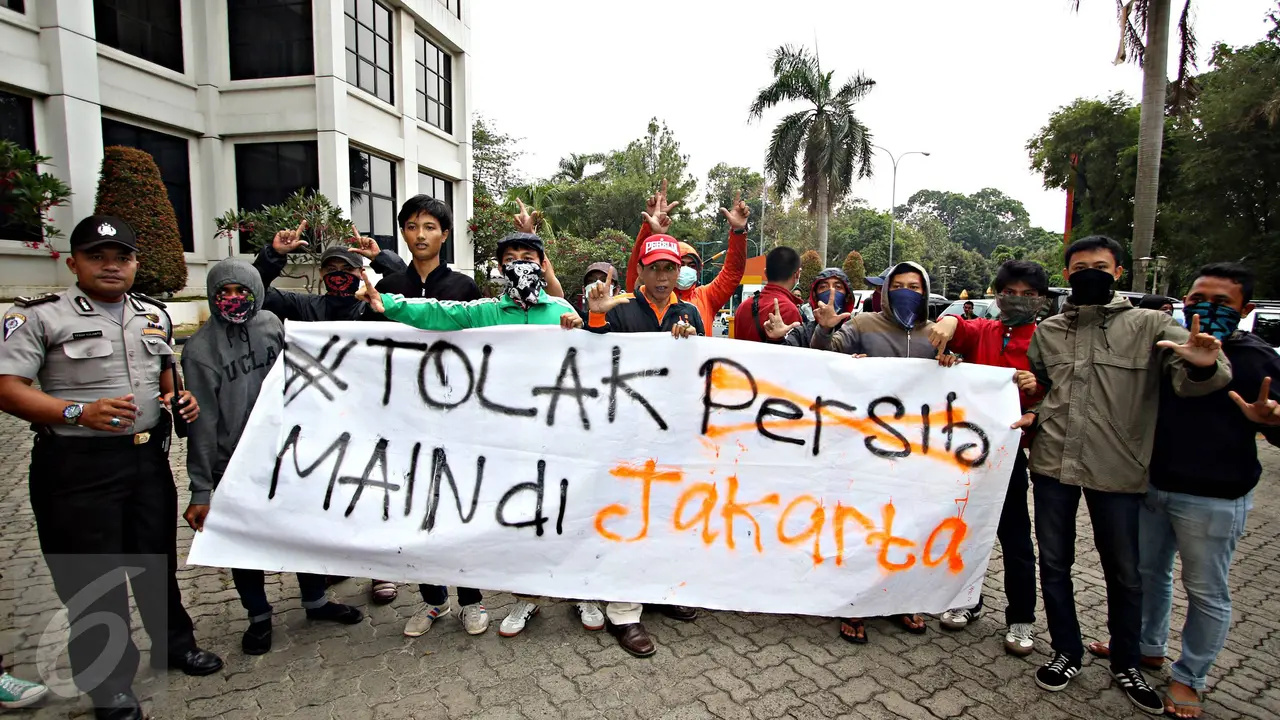 #TOLAK PERSIB
MAIN di Jakarta
PERSIJA
UCLA
6